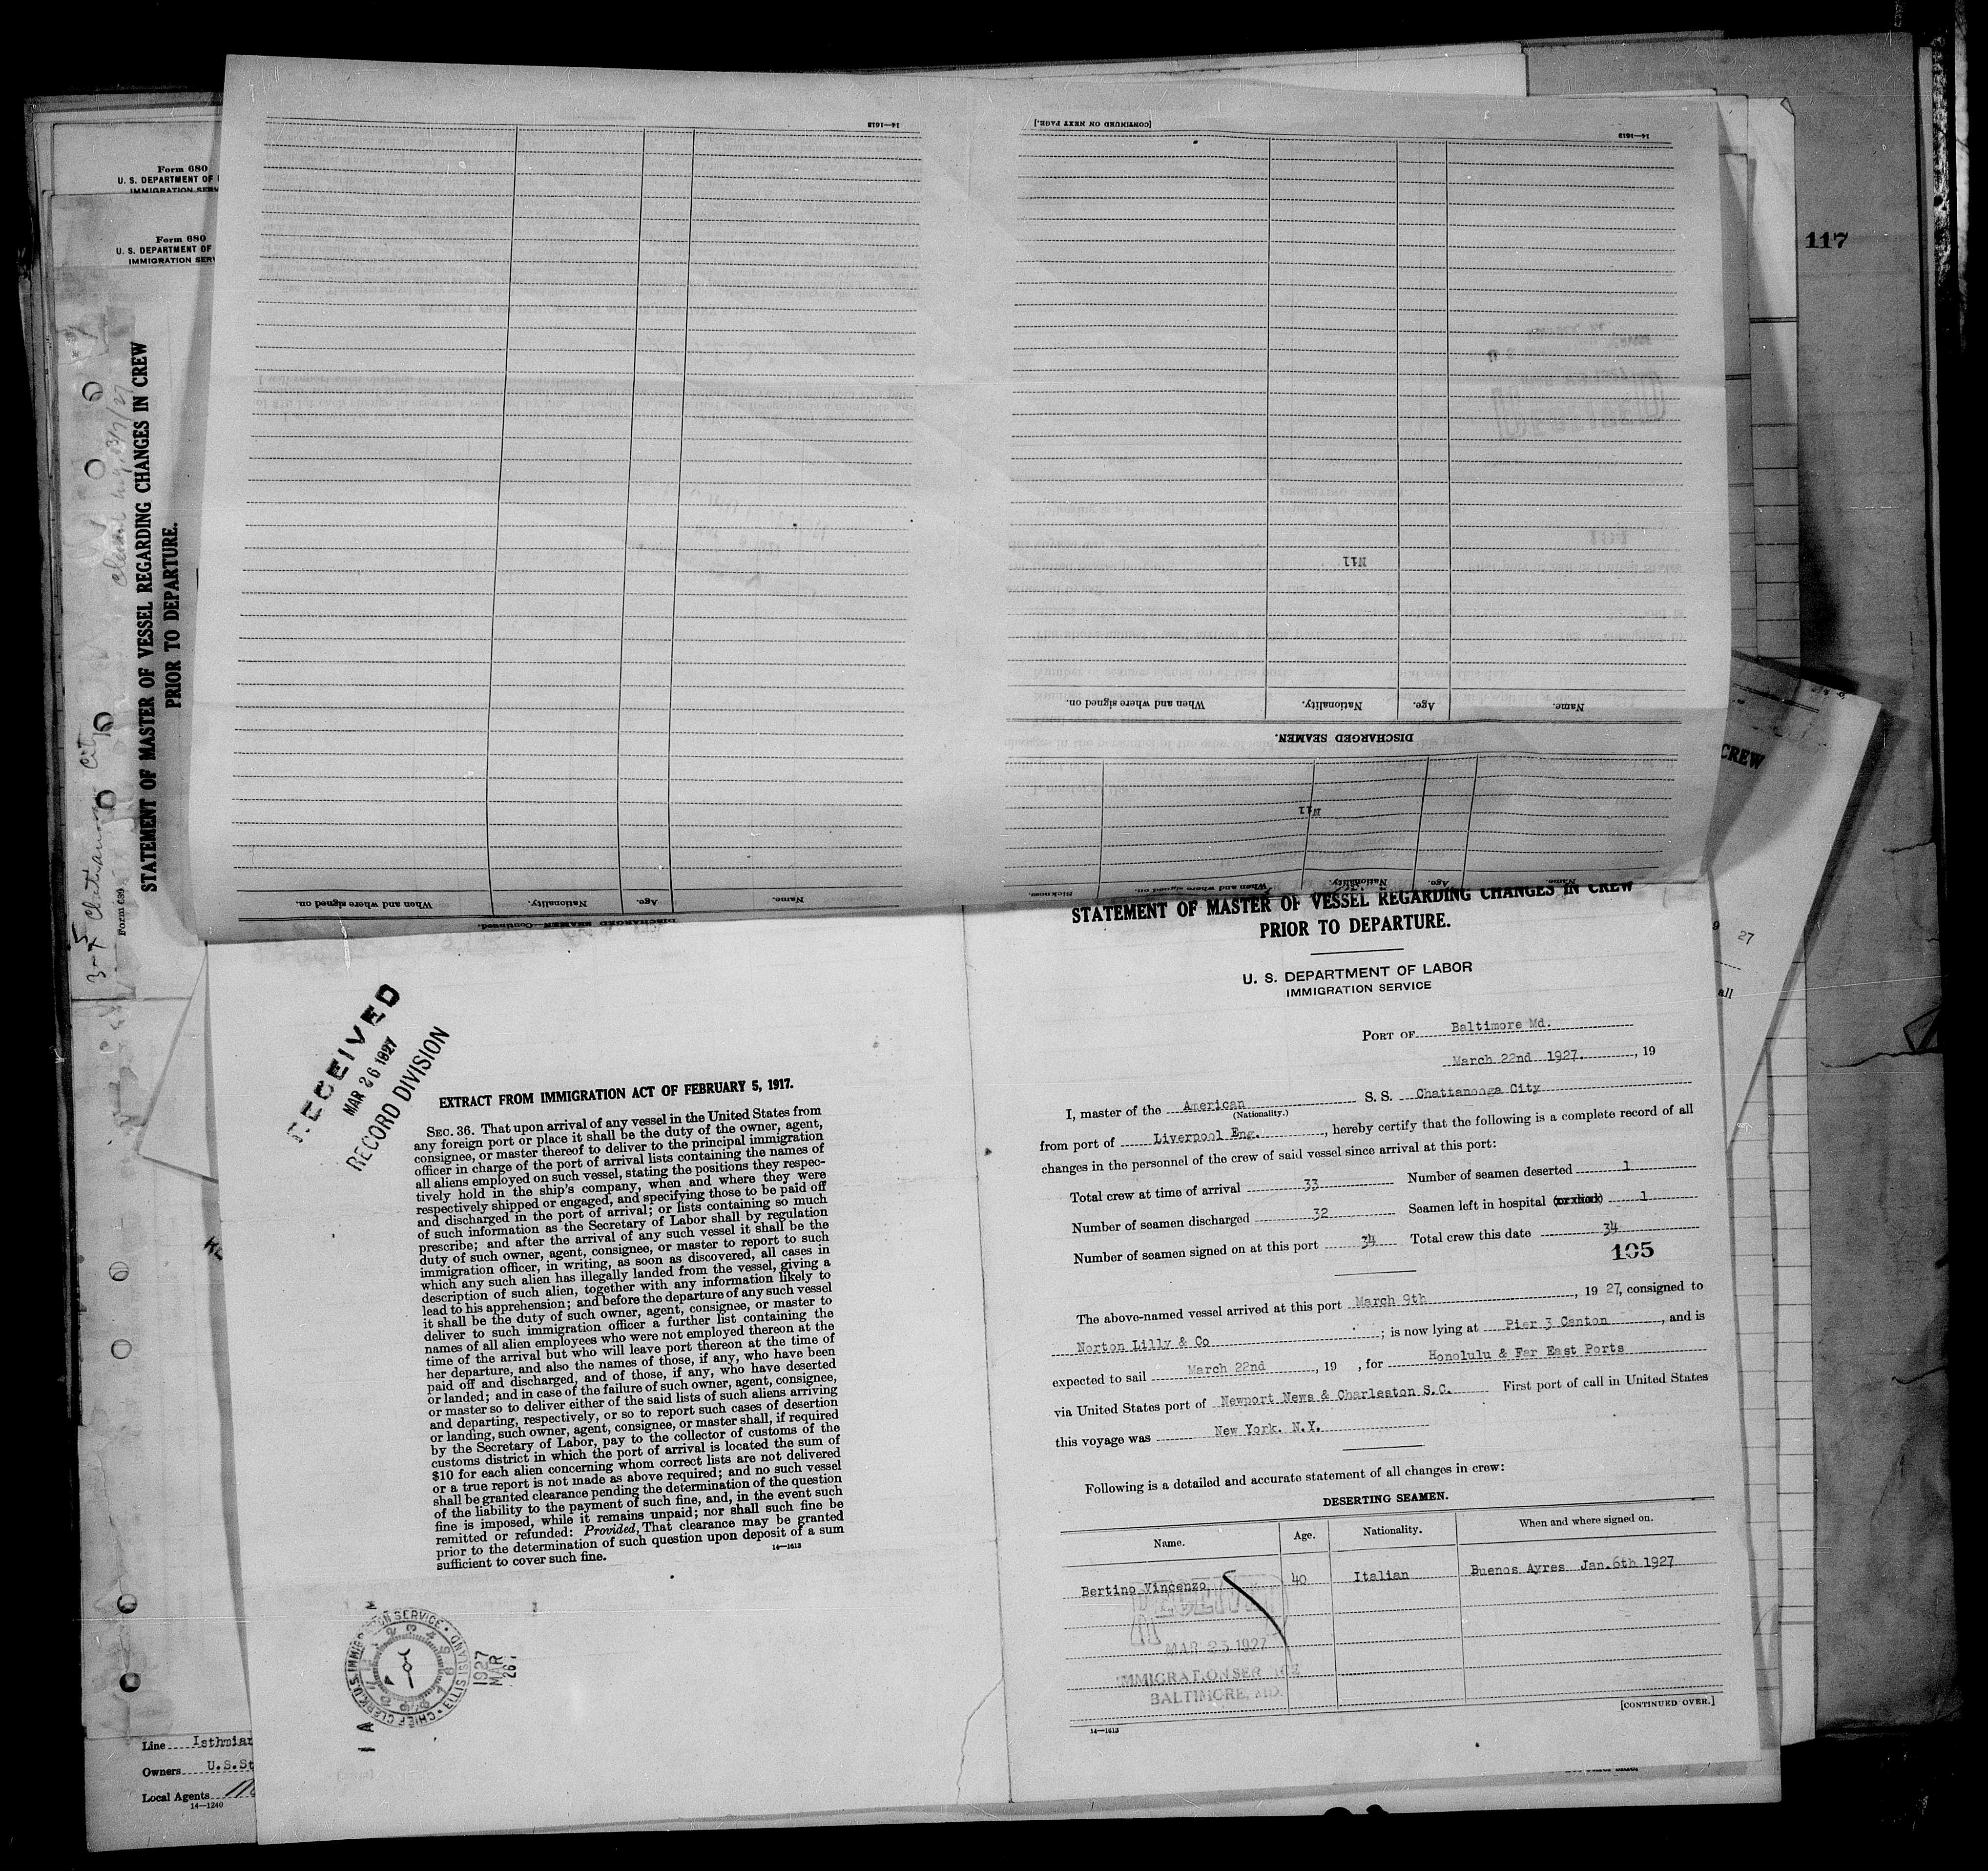 Form 680
U. S. DEPARTMENT OF
IMMIGRATION SERV
Form 680
U. S. DEPARTMENT OF
IMMIGRATION SERV
117
STATEMENT OF MASTER OF VESSEL REGARDING CHANGES IN CREW
PRIOR TO DEPARTURE.
Form 689
14—1613
[CONTINUED ON NEXT PAGE.]
14—1613
Nil
When and where signed on.
Nationality.
Age.
Name.
DISCHARGED SEAMEN.
Nil
Sickness.
When and where signed on.
Nationality.
Age.
Name.
When and where signed on.
Nationality.
Age.
Name.
DISCHARGED SEAMEN—Continued.
CREW
27
all
RECEIVED
MAR 26 1927
RECORD DIVISION
EXTRACT FROM IMMIGRATION ACT OF FEBRUARY 5, 1917.
SEC. 36. That upon arrival of any vessel in the United States from
any foreign port or place it shall be the duty of the owner, agent,
consignee, or master thereof to deliver to the principal immigration
officer in charge of the port of arrival lists containing the names of
all aliens employed on such vessel, stating the positions they respec-
tively hold in the ship's company, when and where they were
respectively shipped or engaged, and specifying those to be paid off
and discharged in the port of arrival; or lists containing so much
of such information as the Secretary of Labor shall by regulation
prescribe; and after the arrival of any such vessel it shall be the
duty of such owner, agent, consignee, or master to report to such
immigration officer, in writing, as soon as discovered, all cases in
which any such alien has illegally landed from the vessel, giving a
description of such alien, together with any information likely to
lead to his apprehension; and before the departure of any such vessel
it shall be the duty of such owner, agent, consignee, or master to
deliver to such immigration officer a further list containing the
names of all alien employees who were not employed thereon at the
time of the arrival but who will leave port thereon at the time of
her departure, and also the names of those, if any, who have been
paid off and discharged, and of those, if any, who have deserted
or landed; and in case of the failure of such owner, agent, consignee,
or master so to deliver either of the said lists of such aliens arriving
and departing, respectively, or so to report such cases of desertion
or landing, such owner, agent, consignee, or master shall, if required
by the Secretary of Labor, pay to the collector of customs of the
customs district in which the port of arrival is located the sum of
$10 for each alien concerning whom correct lists are not delivered
or a true report is not made as above required; and no such vessel
shall be granted clearance pending the determination of the question
of the liability to the payment of such fine, and, in the event such
fine is imposed, while it remains unpaid; nor shall such fine be
remitted or refunded: Provided, That clearance may be granted
prior to the determination of such question upon deposit of a sum
sufficient to cover such fine.
14—1613
CHIEF CLERK U.S. IMMIGRATION SERVICE · ELLIS ISLAND
1927
MAR
26
Line Isthmian
Owners U.S.St
Local Agents
14—1240
STATEMENT OF MASTER OF VESSEL REGARDING CHANGES IN CREW
PRIOR TO DEPARTURE.
U. S. DEPARTMENT OF LABOR
IMMIGRATION SERVICE
PORT OF Baltimore Md.
March 22nd 1927. , 19
I, master of the American S. S. Chattanooga City
(Nationality.)
from port of Liverpool Eng. , hereby certify that the following is a complete record of all
changes in the personnel of the crew of said vessel since arrival at this port:
Total crew at time of arrival 33 Number of seamen deserted 1
Number of seamen discharged 32 Seamen left in hospital 1
Number of seamen signed on at this port 34 Total crew this date 34
105
The above-named vessel arrived at this port March 9th , 19 27, consigned to
Norton Lilly & Co ; is now lying at Pier 3 Canton , and is
expected to sail March 22nd , 19 , for Honolulu & Far East Ports
via United States port of Newport News & Charleston S.C. First port of call in United States
this voyage was New York. N.Y.
Following is a detailed and accurate statement of all changes in crew:
DESERTING SEAMEN.
Name. Age. Nationality. When and where signed on.
Bertino Vincenzo 40 Italian Buenos Ayres Jan.6th 1927
RECEIVED
MAR 23 1927
IMMIGRATION SERVICE
BALTIMORE, MD.
[CONTINUED OVER.]
14—1613